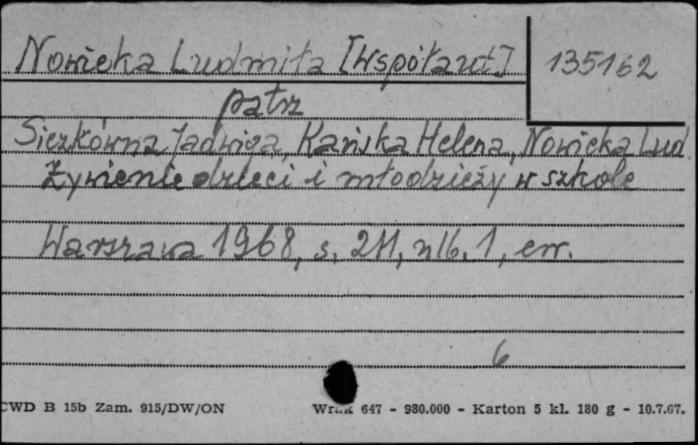 Nowicka Ludmiła [współaut]
135162
patrz
Sieczkówna Jadwiga, Kańska Helena, Nowicka Lud
Żywienie dzieci i młodzieży w szkole
Warszawa 1968, s. 211, nlb. 1, err.
6
CWD B 15b Zam. 915/DW/ON
647 - 980.000 - Karton 5 kl. 180 g - 10.7.67.